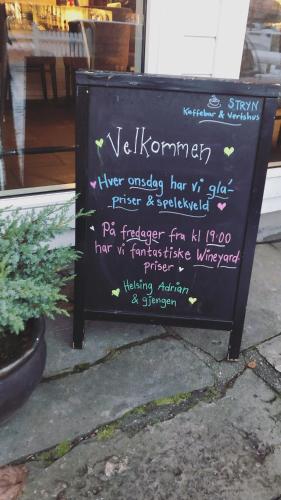 STRYN
Kaffebar & Vertshus
Velkommen
Hver onsdag har vi gla'-
priser & spelekveld
På fredager fra kl 19:00
har vi fantastiske Wineyard
priser
Helsing Adrian
& gjengen